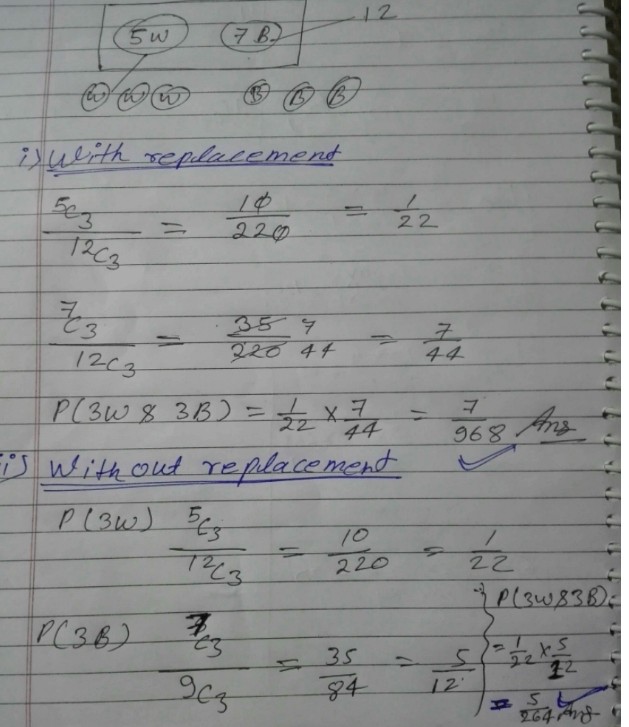 5W 7B 12
W W W B B B
i) With replacement
5C3 / 12C3 = 10/220 = 1/22
7C3 / 12C3 = 35/220 7/44 = 7/44
P(3W & 3B) = 1/22 × 7/44 = 7/968 Ans
ii) Without replacement
P(3W) 5C3 / 12C3 = 10/220 = 1/22
P(3B) 7C3 / 9C3 = 35/84 = 5/12
P(3W&3B)
= 1/22 × 5/12
= 5/264 Ans